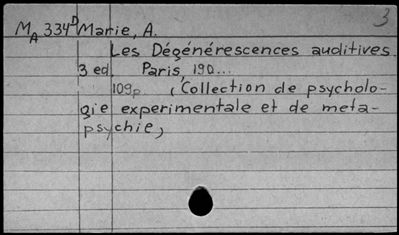 3
MA 334D Marie, A.
Les Dégénérescences auditives.
3 ed. Paris, 190...
109p. (Collection de psycholo-
gie experimentale et de meta-
psychie,